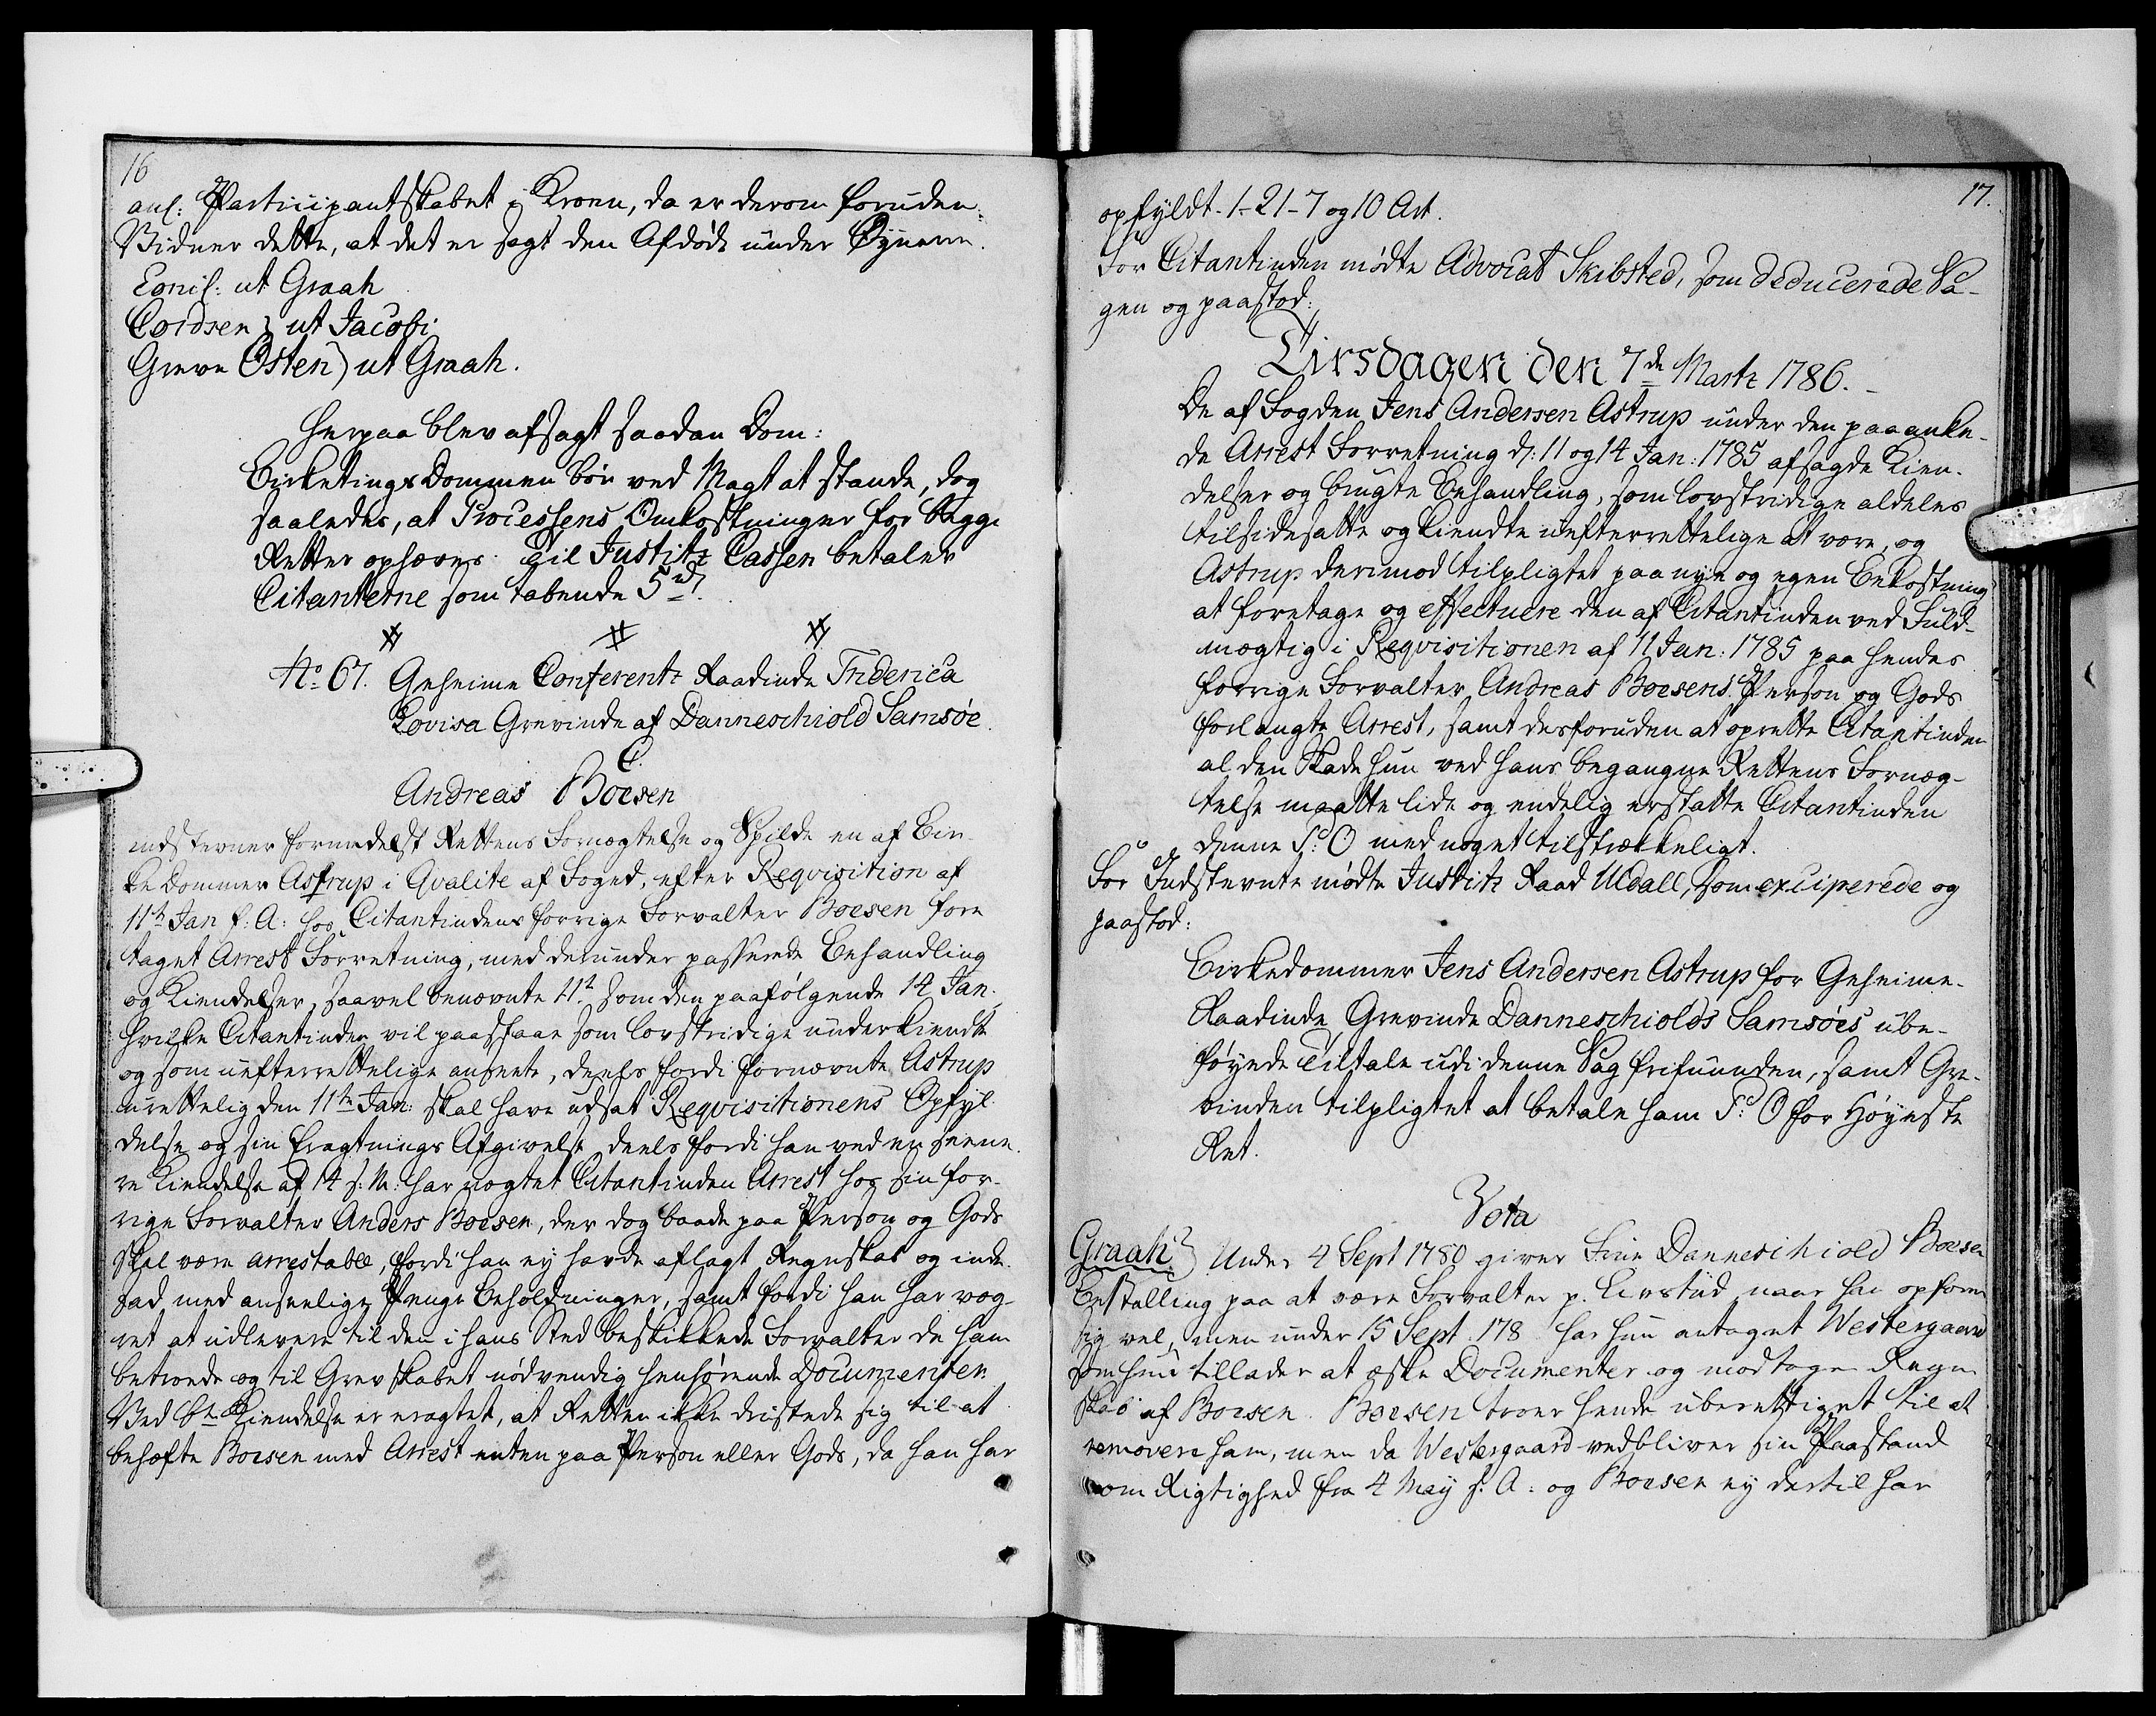 16
anl: Participantskabet i Kroen, da er derom foruden
Vidner dette, at det er sagt den Afdøde under Øynene.
Conif: ut Graah
Cordsen) ut Jacobi
Greve Osten) ut Graah.
Herpaa blev afsagt saadan Dom:
Birketings Dommen bør ved Magt at stande, dog
saaledes, at Processens Omkostninger for begge
Retter ophæves. Til Justitz Cassen betaler
Citanterne som tabende 5 rd.
No 67. Geheime Conferentz Raadinde Friderica
Lovisa Grevinde af Danneschiold Samsøe
C
Andreas Boesen
indstevner formedelst Rettens Fornægtelse og Spilde en af Bir-
ke Dommer Astrup i Qvalite af Foged, efter Reqvisition af
11te Jan f: A: hos Citantindens forrige Forvalter Boesen fore
taget Arrest Forretning, med derunder passerede Behandling
og Kiendelser, saavel benævnte 11te som den paafølgende 14 Jan.
hvilke Citantinden vil paastaae som lovstridige underkiendte
og som uefterrettelige ansete, deels fordi fornævnte Astrup
urettelig den 11te Jan: skal have udsat Reqvisitionens Opfyl-
delse og sin Eragtnings Afgivelse deels fordi han ved en senne-
re Kiendelse af 14 s: M: har nægtet Citantinden Arrest hos sin for-
rige Forvalter Anders Boesen, der dog baade paa Person og Gods
skal være arrestabel, fordi han ej havde aflagt Regnskab og inde
sad med anseelige Penge Beholdninger, samt fordi han har væg-
ret at udlevere til den i hans Sted beskikkede Forvalter de ham
betroede og til Grevskabet nødvendig henhørende Documenter.
Ved bte Kiendelse er eragtet, at Retten ikke dristede sig til at
behæfte Boesen med Arrest enten paa Person eller Gods, da han har
17.
opfyldt 1-21-7 og 10 Art.
For Citantinden mødte Advocat Skibsted, som deducerede Sa-
gen og paastod:
Tirsdagen den 7de Martz 1786.
De af Fogden Jens Andersen Astrup under den paaanke-
de Arrest Forretning d: 11 og 14 Jan: 1785 afsagde Kien-
delser og brugte Behandling, som lovstridige aldeles
tilsidesatte og kiendte uefterrettelige at være, og
Astrup derimod tilpligtet paa nye og egen Bekostning
at foretage og effectuere den af Citantinden ved Fuld-
mægtig i Reqvisitionen af 11 Jan: 1785 paa hendes
forrige Forvalter Andreas Boesens Person og Gods
forlangte Arrest, samt desforuden at oprette Citantinden
al den Skade hun ved hans begangne Rettens Fornæg-
telse maatte lide og endelig erstatte Citantinden
denne P: O med noget tilstrækkeligt.
For Indstevnte mødte Justitz Raad Uldall, som exciperede og
paastod:
Birkedommer Jens Andersen Astrup for Geheime-
Raadinde Grevinde Danneschiolds Samsøes ube-
føyede Tiltale udi denne Sag frifunden, samt Gre-
vinden tilpligtet at betale ham P: O for Høyeste
Ret.
Vota
Graah) Under 4 Sept 1780 giver Frue Danneschiold Boesen
Bestalling paa at være Forvalter p. Livstid naar han opfører
sig vel, men under 15 Sept. 178 har hun antaget Westergaard
som hun tillader at æske Documenter og modtage Regn
skab af Boesen. Boesen troer hende uberettiget til at
removere ham, men da Westergaard vedbliver sin Paastand
om Rigtighed fra 4 May f: A: og Boesen ej dertil har